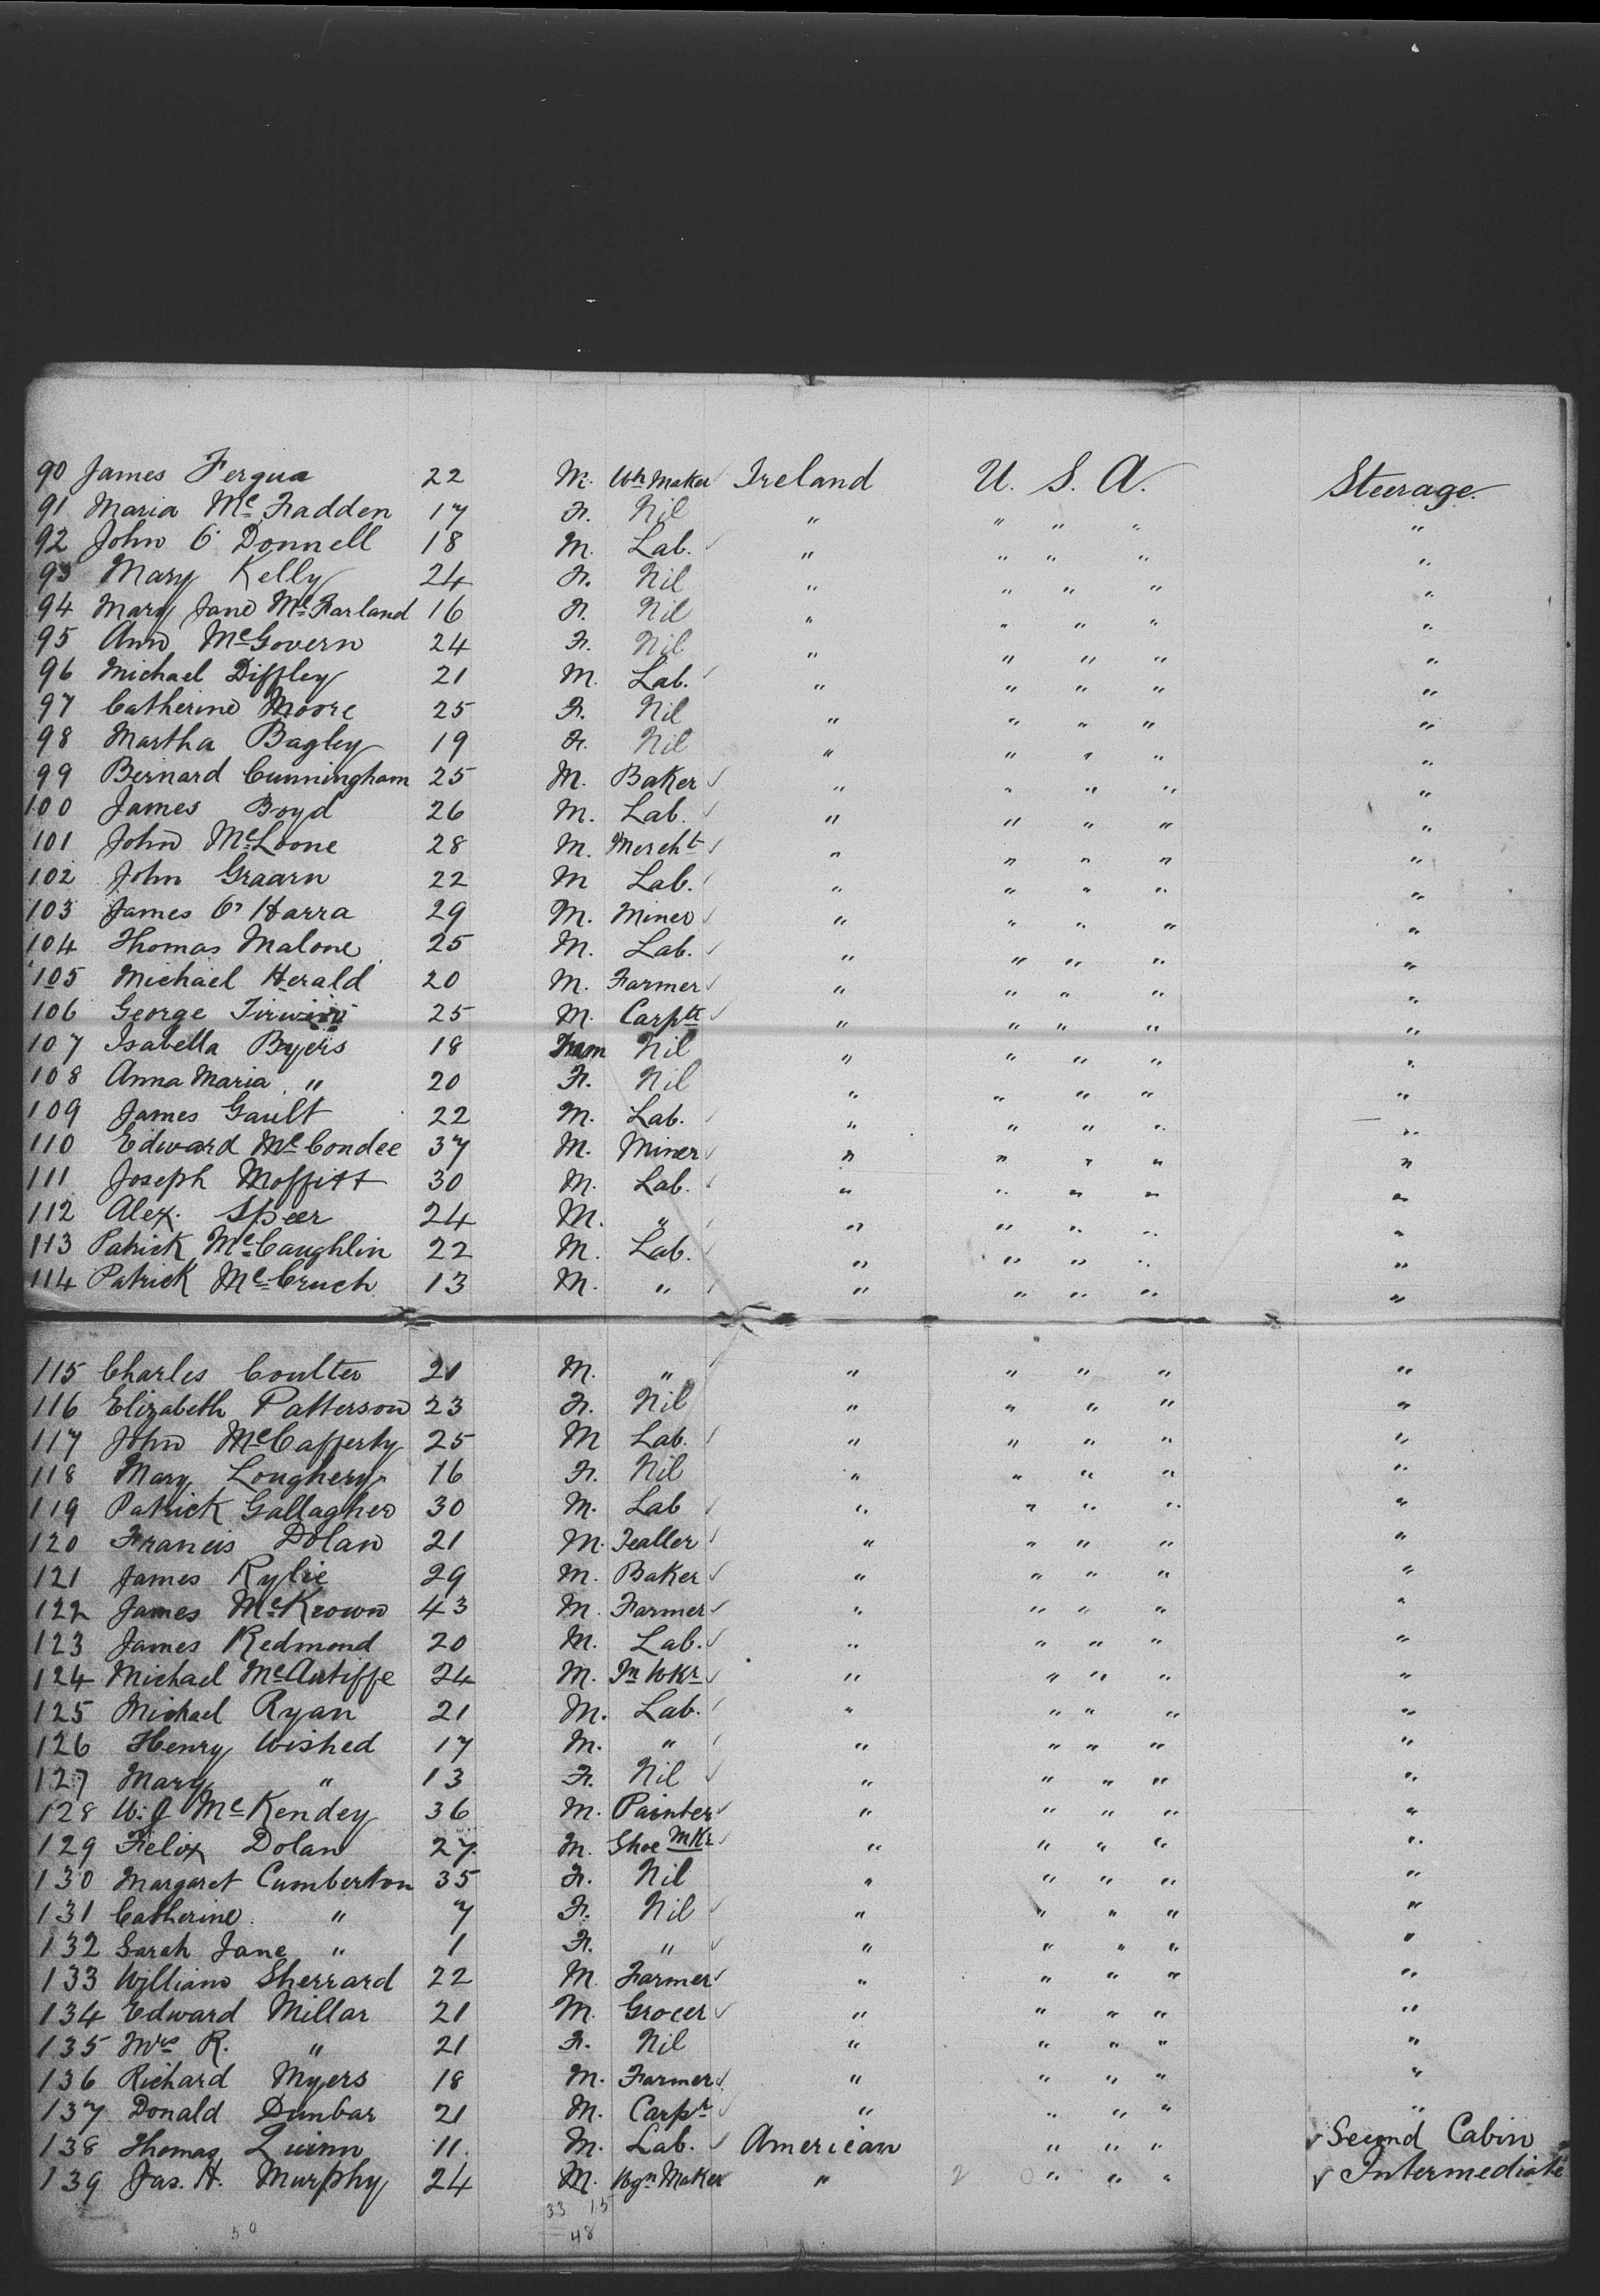 90 James Fergua 22 M. Wh Maker Ireland U. S. A. Steerage.
91 Maria Mc Fadden 17 F. Nil " " " " "
92 John O' Donnell 18 M. Lab. " " " " "
93 Mary Kelly 24 F. Nil " " " " "
94 Mary Jane McFarland 16 F. Nil " " " " "
95 Ann McGovern 24 F. Nil " " " " "
96 Michael Diffley 21 M. Lab. " " " " "
97 Catherine Moore 25 F. Nil " " " " "
98 Martha Bagley 19 F. Nil " " " " "
99 Bernard Cunningham 25 M. Baker " " " " "
100 James Boyd 26 M. Lab. " " " " "
101 John McLoone 28 M. Mercht " " " " "
102 John Graarn 22 M Lab. " " " " "
103 James O' Harra 29 M. Miner " " " " "
104 Thomas Malone 25 M. Lab. " " " " "
105 Michael Herald 20 M. Farmer " " " " "
106 George 25 M. Carptr " " " " "
107 Isabella Byers 18 Fem Nil " " " " "
108 Anna Maria " 20 F. Nil " " " " "
109 James Gault 22 M. Lab. " " " " "
110 Edward McCondee 37 M. Miner " " " " "
111 Joseph Moffitt 30 M. Lab. " " " " "
112 Alex. Speer 24 M. " " " " " "
113 Patrick McCaughlin 22 M. Lab. " " " " "
114 Patrick McCruch 13 M. " " " " " "
115 Charles Coulter 21 M. " " " " " "
116 Elizabeth Patterson 23 F. Nil " " " " "
117 John McCafferty 25 M Lab. " " " " "
118 Mary Loughery 16 F. Nil " " " " "
119 Patrick Gallagher 30 M. Lab " " " " "
120 Francis Dolan 21 M. Tealler " " " " "
121 James Rylie 29 M. Baker " " " " "
122 James McKeown 43 M. Farmer " " " " "
123 James Redmond 20 M. Lab. " " " " "
124 Michael McAutiffe 24 M. In Wkr " " " " "
125 Michael Ryan 21 M. Lab. " " " " "
126 Henry Wished 17 M. " " " " " "
127 Mary " 13 F. Nil " " " " "
128 W. J McKendey 36 M. Painter " " " " "
129 Felix Dolan 27. M. Shoe Mkr " " " " "
130 Margaret Cumberton 35 F. Nil " " " " "
131 Catherine " 7 F. Nil " " " " "
132 Sarah Jane " 1 F. " " " " " "
133 William Sherrard 22 M. Farmer " " " " "
134 Edward Millar 21 M. Grocer " " " " "
135 Mrs R. " 21 F. Nil " " " " "
136 Richard Myers 18 M. Farmer " " " " "
137 Donald Dunbar 21 M. Carpr " " " " "
138 Thomas Quinn 11. M. Lab. American " " " Second Cabin
139 Jas. H. Murphy 24 M. Wgn Maker " 2 0 " " " Intermediate
33 15
50 48